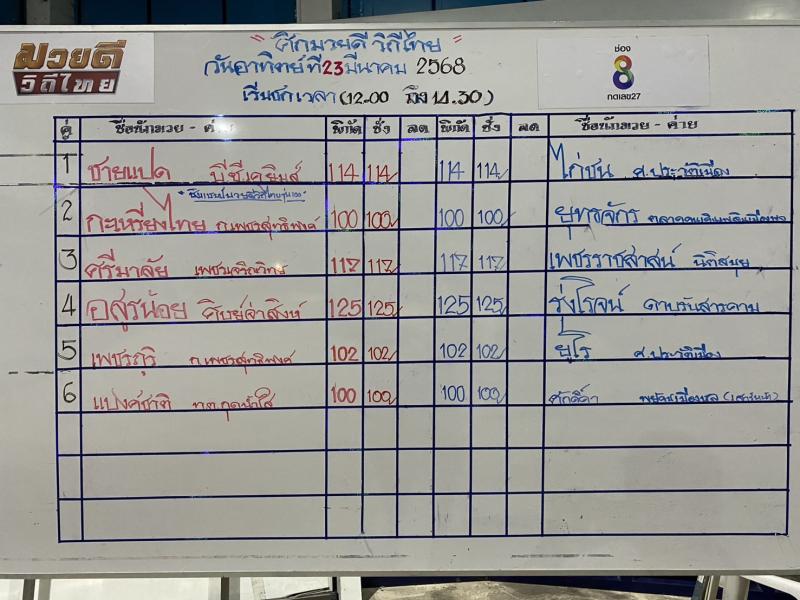 มวยดี
วิถีไทย
" ศึกมวยดีวิถีไทย "
วันอาทิตย์ที่23มีนาคม 2568
เริ่มชกเวลา(12.00 ถึง14.30)
ช่อง
8
กดเลข27
คู่ ชื่อนักมวย - ค่าย พิกัด ชั่ง ลด พิกัด ชั่ง ลด ชื่อนักมวย - ค่าย
1 ชายแปด พีซีเคยิมส์ 114 114 114 114 ไก่ชน ศ.ประวัติเมือง
2 กะเหรี่ยงไทย ก.เพชรสุทธิพงศ์ 100 100 100 100 ยุทธจักร
3 ศรีมาลัย 117 117 117 117 เพชรราชศาสน์ นิติสมุย
4 อสูรน้อย ศิษย์จ่าสิงห์ 125 125 125 125 รุ่งโรจน์ ดาบรันสารคาม
5 เพชรภูริ ก.เพชรสุทธิพงศ์ 102 102 102 102 ยูโร ศ.ประวัติเมือง
6 แบงค์ชาติ ท.ต.กุดน้ำใส 100 100 100 100 ศักดิ์ดา